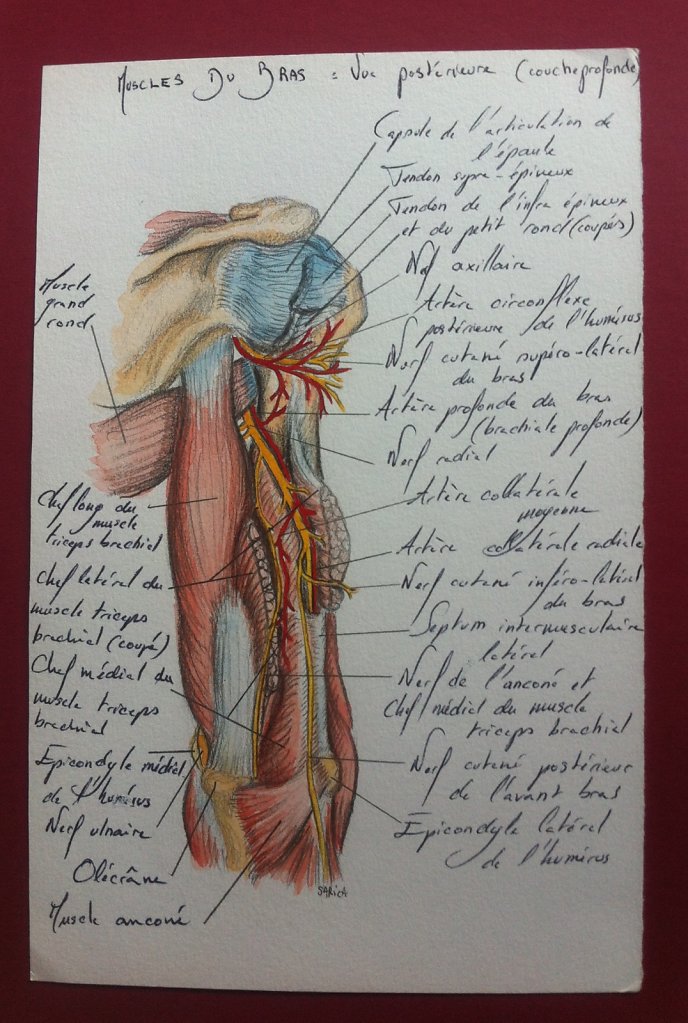 MUSCLES DU BRAS : Vue postérieure (couche profonde)
Capsule de l'articulation de
l'épaule
Tendon supra-épineux
Tendon de l'infra épineux
et du petit rond (coupés)
Nerf axillaire
Artère circonflexe
postérieure de l'humérus
Nerf cutané supéro-latéral
du bras
Artère profonde du bras
(brachiale profonde)
Nerf radial
Artère collatérale
moyenne
Artère collatérale radiale
Nerf cutané inféro-latéral
du bras
Septum intermusculaire
latéral
Nerf de l'anconé et
chef médial du muscle
triceps brachial
Nerf cutané postérieur
de l'avant bras
Epicondyle latéral
de l'humérus
Muscle
grand
rond
Chef long du
muscle
triceps brachial
Chef latéral du
muscle triceps
brachial (coupé)
Chef médial du
muscle triceps
brachial
Epicondyle médial
de l'humérus
Nerf ulnaire
Olécrâne
Muscle anconé
SARICA